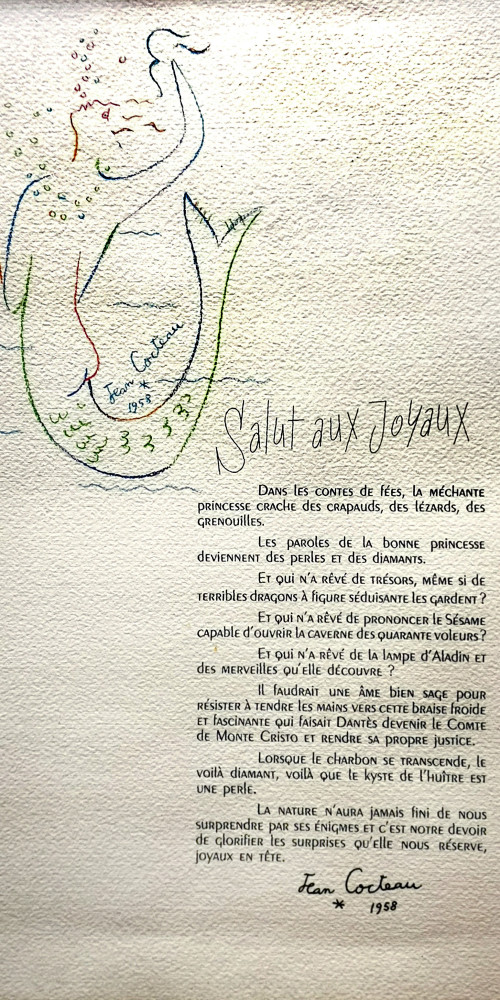 Jean Cocteau
*
1958
Salut aux Joyaux
Dans les contes de fées, la méchante
princesse crache des crapauds, des lézards, des
grenouilles.
Les paroles de la bonne princesse
deviennent des perles et des diamants.
Et qui n'a rêvé de trésors, même si de
terribles dragons à figure séduisante les gardent ?
Et qui n'a rêvé de prononcer le Sésame
capable d'ouvrir la caverne des quarante voleurs ?
Et qui n'a rêvé de la lampe d'Aladin et
des merveilles qu'elle découvre ?
Il faudrait une âme bien sage pour
résister à tendre les mains vers cette braise froide
et fascinante qui faisait Dantès devenir le Comte
de Monte Cristo et rendre sa propre justice.
Lorsque le charbon se transcende, le
voilà diamant, voilà que le kyste de l'huître est
une perle.
La nature n'aura jamais fini de nous
surprendre par ses énigmes et c'est notre devoir
de glorifier les surprises qu'elle nous réserve,
joyaux en tête.
Jean Cocteau
* 1958